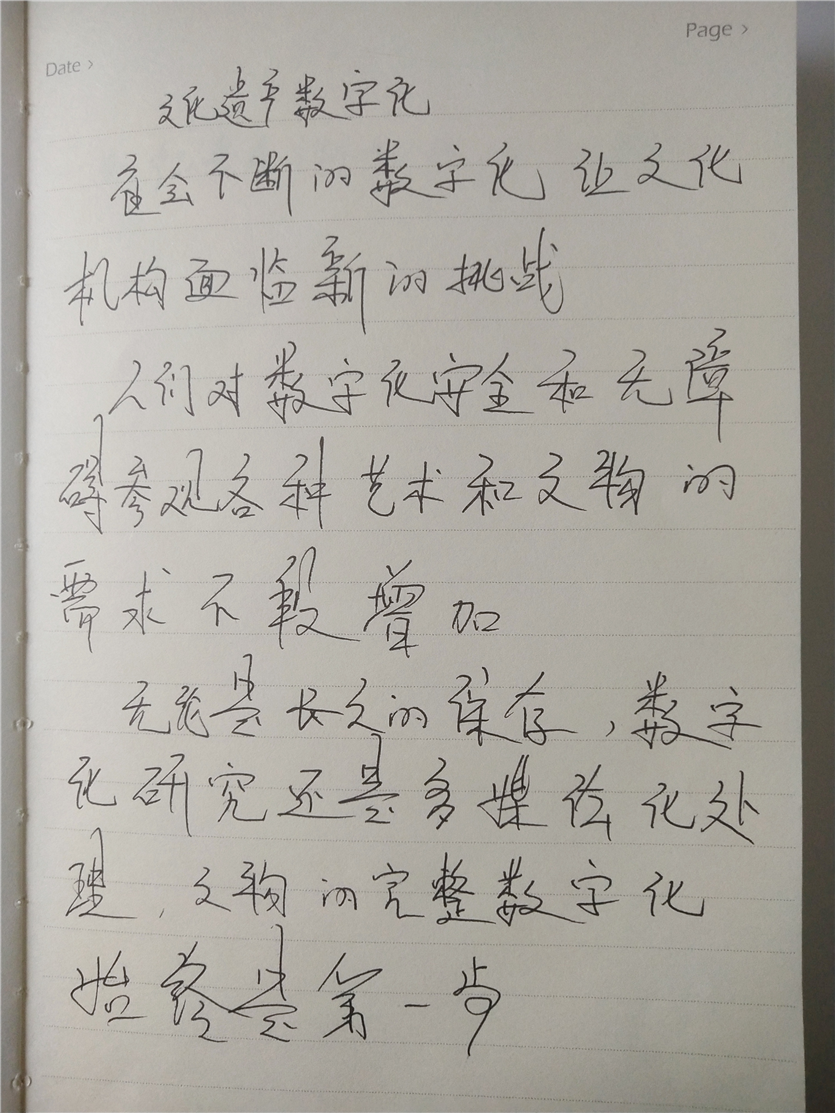 Page >
Date >
文化遗产数字化
社会不断的数字化 让文化
机构面临新的挑战
人们对数字化安全和无障
碍参观各种艺术和文物的
需求不段增加
无论是长久的保存，数字
化研究还是多媒体化处
理，文物的完整数字化
始终是第一步